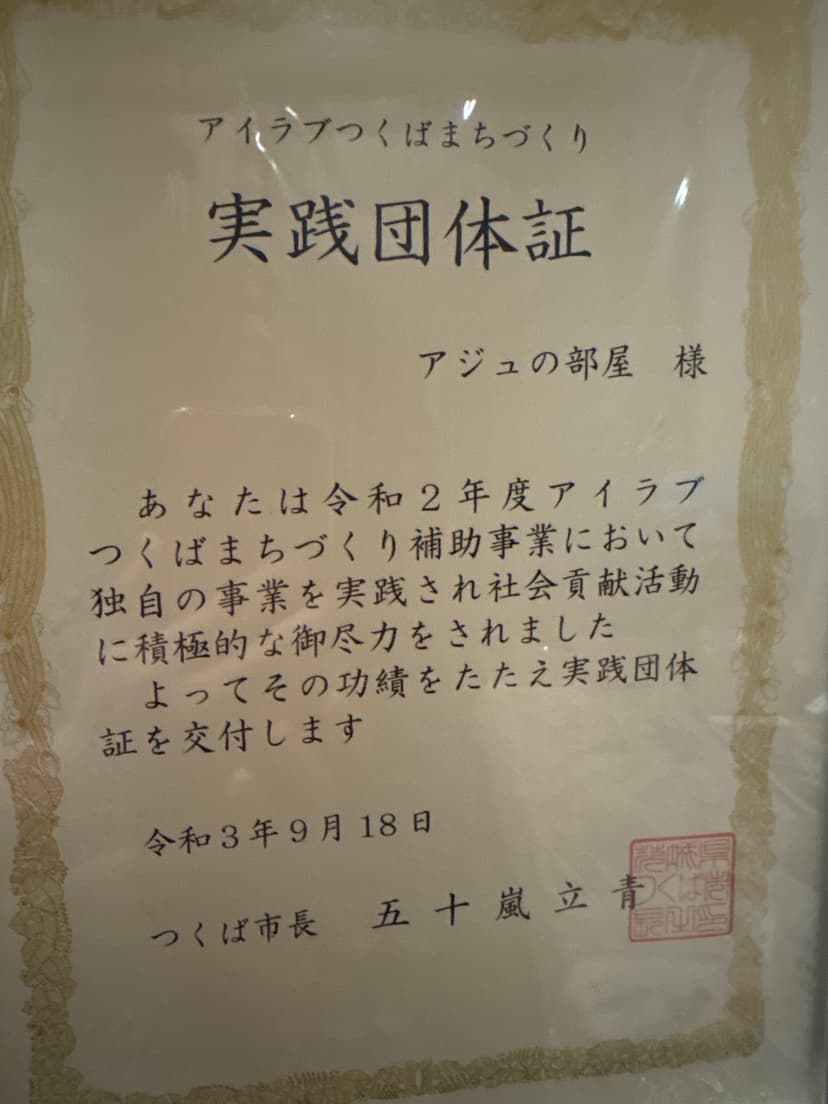 アイラブつくばまちづくり
実践団体証
アジュの部屋　様
あなたは令和2年度アイラブ
つくばまちづくり補助事業において
独自の事業を実践され社会貢献活動
に積極的な御尽力をされました
よってその功績をたたえ実践団体
証を交付します
令和3年9月18日
つくば市長　五十嵐立青